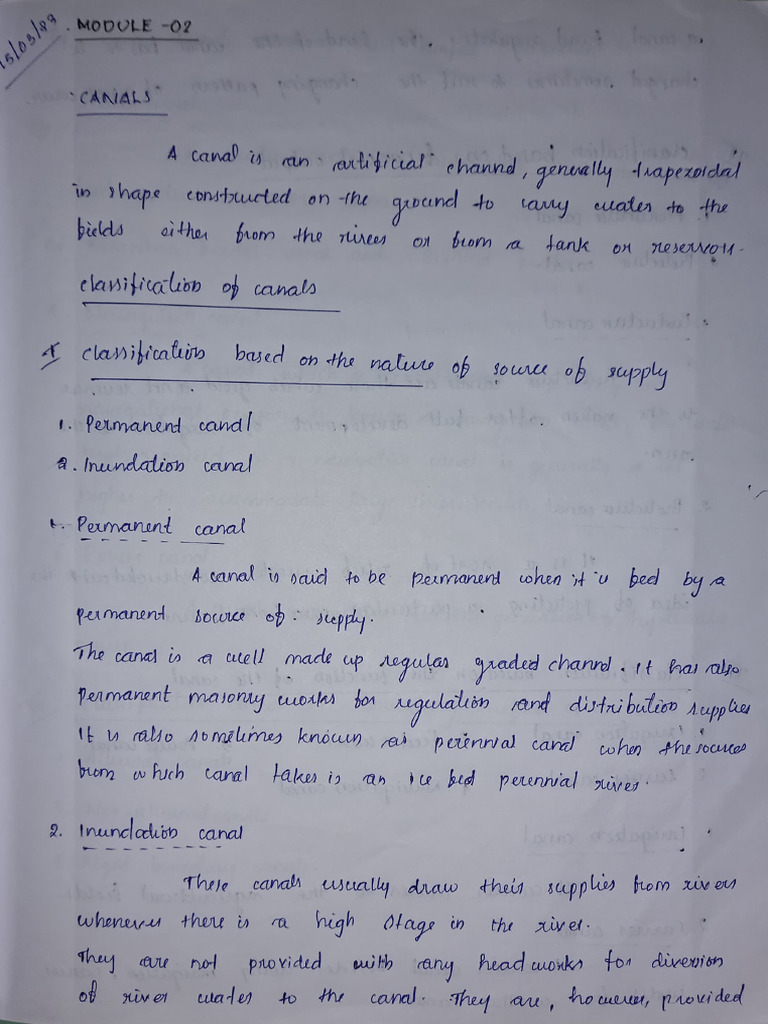 15/03/23
MODULE - 02
CANALS
A canal is an artificial channel, generally trapezoidal
in shape constructed on the ground to carry water to the
fields either from the rivers or from a tank or reservoir.
classification of canals
I classification based on the nature of source of supply
1. Permanent canal
2. Inundation canal
1. Permanent canal
A canal is said to be permanent when it is fed by a
permanent source of supply.
The canal is a well made up regular graded channel. It has also
permanent masonry works for regulation and distribution supplies
It is also sometimes known as perennial canal when the sources
from which canal takes is an ice fed perennial river.
2. Inundation canal
These canals usually draw their supplies from rivers
whenever there is a high stage in the river.
They are not provided with any headworks for diversion
of river water to the canal. They are, however, provided